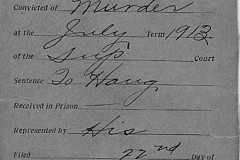 Convicted of Murder
at the July Term 1913
of the Sup Court
Sentence To Hang
Received in Prison —
Represented by His
Filed 22nd Day of